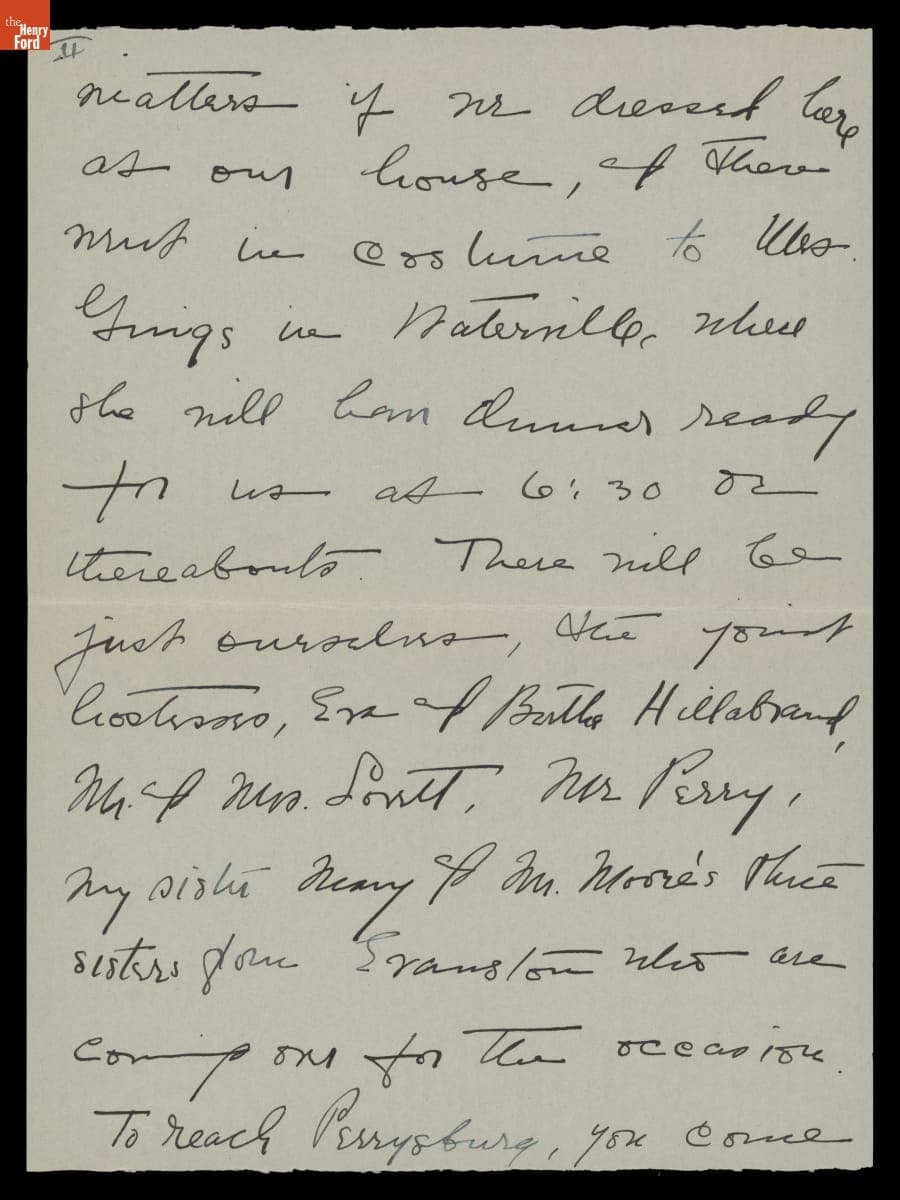 the
Henry
Ford
II
matters if we dressed here
at our house, & then
went in costume to Mrs.
in Waterville, where
she will have dinner ready
for us at 6:30 or
thereabouts. There will be
just ourselves, the joint
hostesses, Eva & Bertha Hillabrand,
Mr. & Mrs. Lovett, Mr Perry,
my sister Mary & Mr. Moore's three
sisters from Evanston who are
coming on for the occasion.
To reach Perrysburg, you come